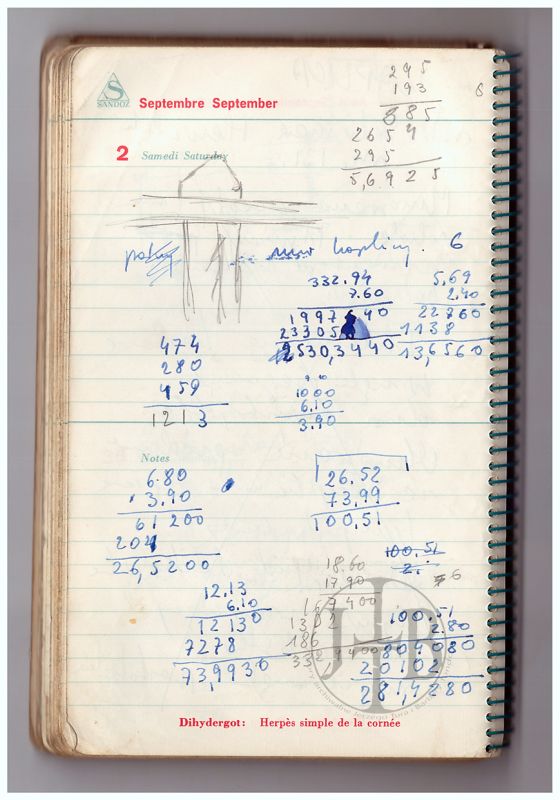 295
193
6
885
S
SANDOZ
Septembre September
2654
295
5,6925
2 Samedi Saturday
6
332.94
7.60
1997640
23305
2530,3440
5,69
2.40
22760
1138
13,6560
474
280
459
1213
10.00
6.10
3.90
Notes
6.80
3.90
61200
204
26,5200
26.52
73,99
100,51
100,51
2.
18.60
17.90
167400
1302
186
332,9400
6
12.13
6.10
12130
7278
73,9930
100.51
2.80
804080
20102
281,4280
Dihydergot: Herpès simple de la cornée